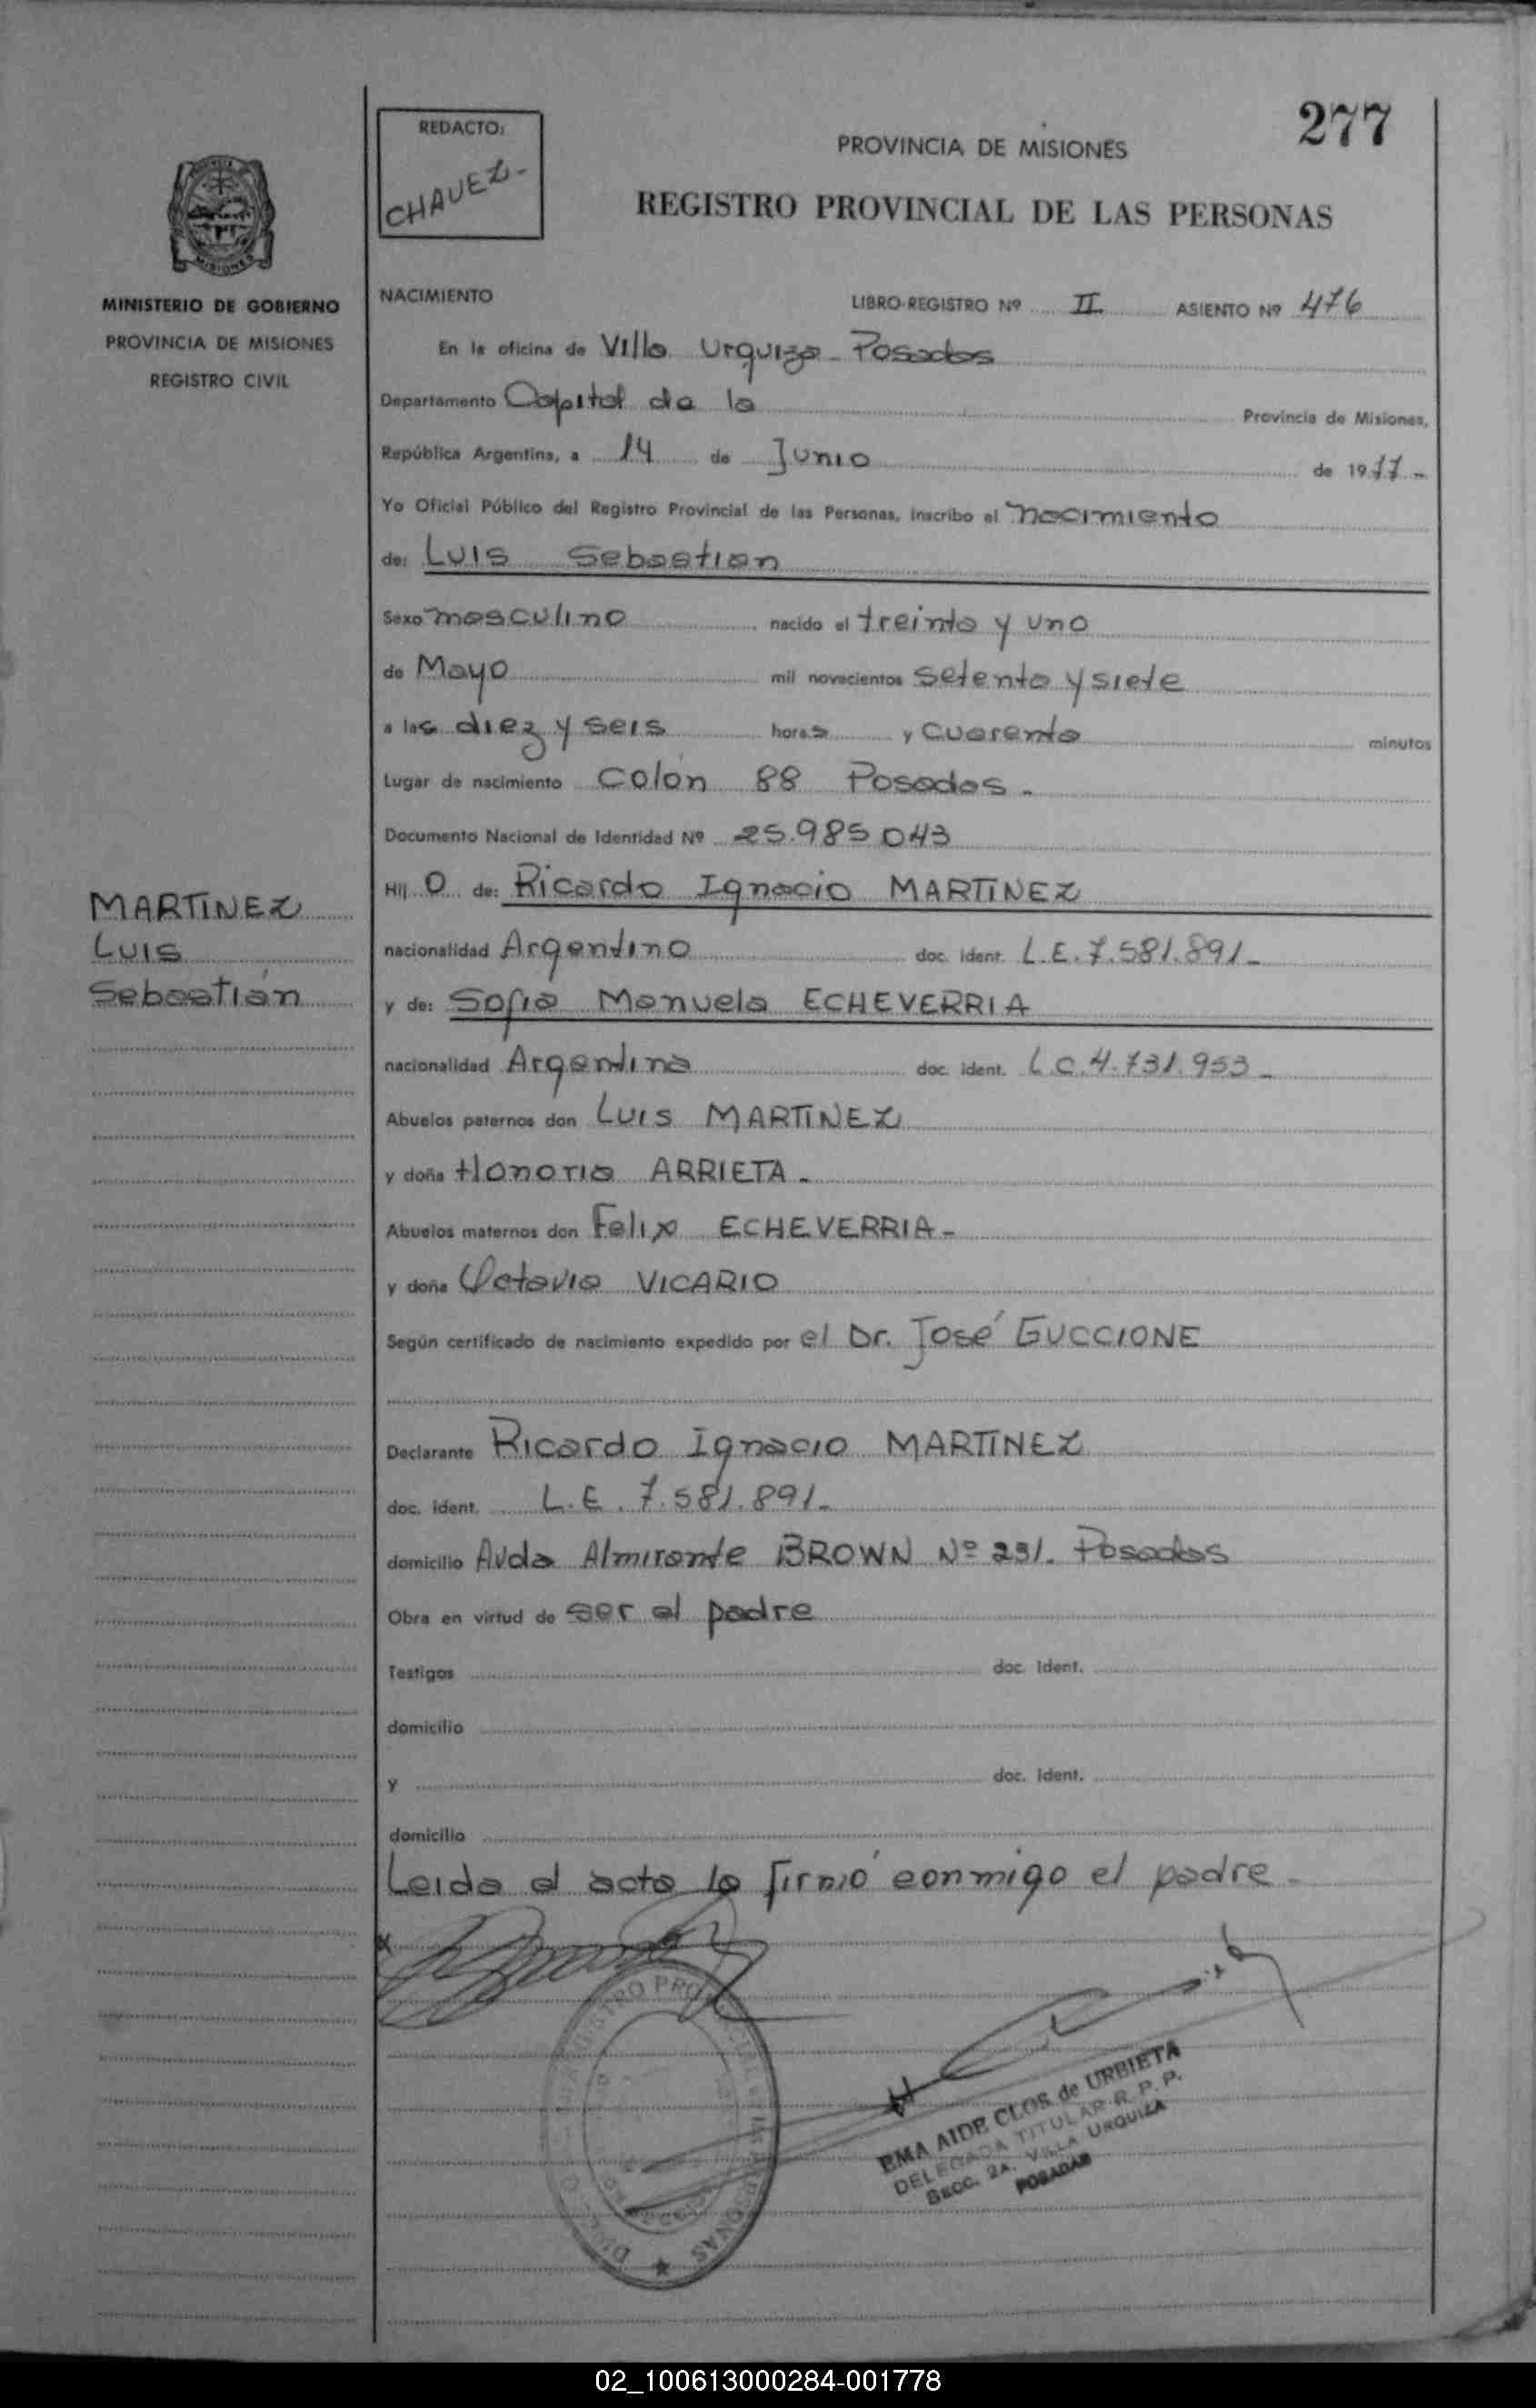 277
REDACTO:
CHAVEZ-
PROVINCIA DE MISIONES
REGISTRO PROVINCIAL DE LAS PERSONAS
MISIONES
MINISTERIO DE GOBIERNO
PROVINCIA DE MISIONES
REGISTRO CIVIL
NACIMIENTO LIBRO-REGISTRO Nº II ASIENTO Nº 476
En la oficina de Villa Urquiza - Posadas
Departamento Capital de la Provincia de Misiones,
República Argentina, a 14 de Junio de 1977-
Yo Oficial Público del Registro Provincial de las Personas, inscribo el nacimiento
de: Luis Sebastian
Sexo masculino nacido el treinta y uno
de Mayo mil novecientos setenta y siete
a las diez y seis horas y cuarenta minutos
Lugar de nacimiento Colón 88 Posadas.
Documento Nacional de Identidad Nº 25.985043
Hij o de: Ricardo Ignacio MARTINEZ
nacionalidad Argentino doc. ident. L.E. 7.581.891-
y de: Sofia Manuela ECHEVERRIA
nacionalidad Argentina doc. ident. L.C. 4.731.953-
Abuelos paternos don Luis MARTINEZ
y doña Honoria ARRIETA.
Abuelos maternos don Felix ECHEVERRIA-
y doña Octavia VICARIO
Según certificado de nacimiento expedido por el Dr. José GUCCIONE
Declarante Ricardo Ignacio MARTINEZ
doc. ident. L.E. 7.581.891-
domicilio Avda Almirante BROWN Nº 231. Posadas
Obra en virtud de ser el padre
Testigos doc. ident.
domicilio
y doc. ident.
domicilio
Leida el acta la firmó conmigo el padre-
MARTINEZ
Luis
Sebastián
EMA AIDE CLOS de URBIETA
DELEGADA TITULAR R. P. P.
SECC. 2A. VILLA URQUIZA
POSADAS
02_100613000284-001778